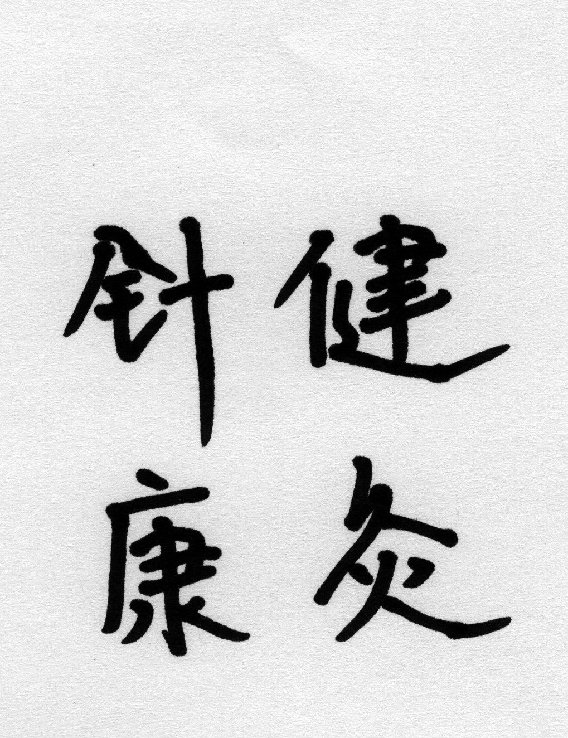 针健
康灸